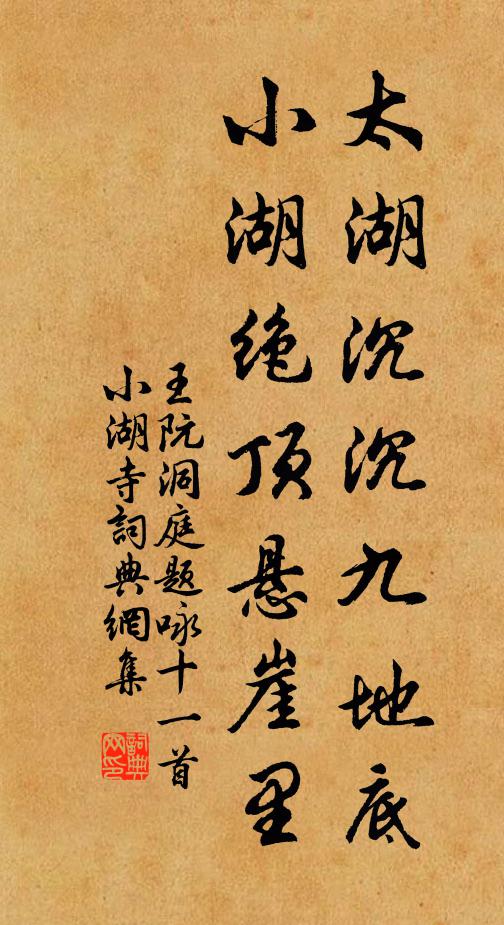 太湖沉沉九地底
小湖绝顶悬崖里
王阮洞庭题咏十一首
小湖寺詞典網集
詞典
网印